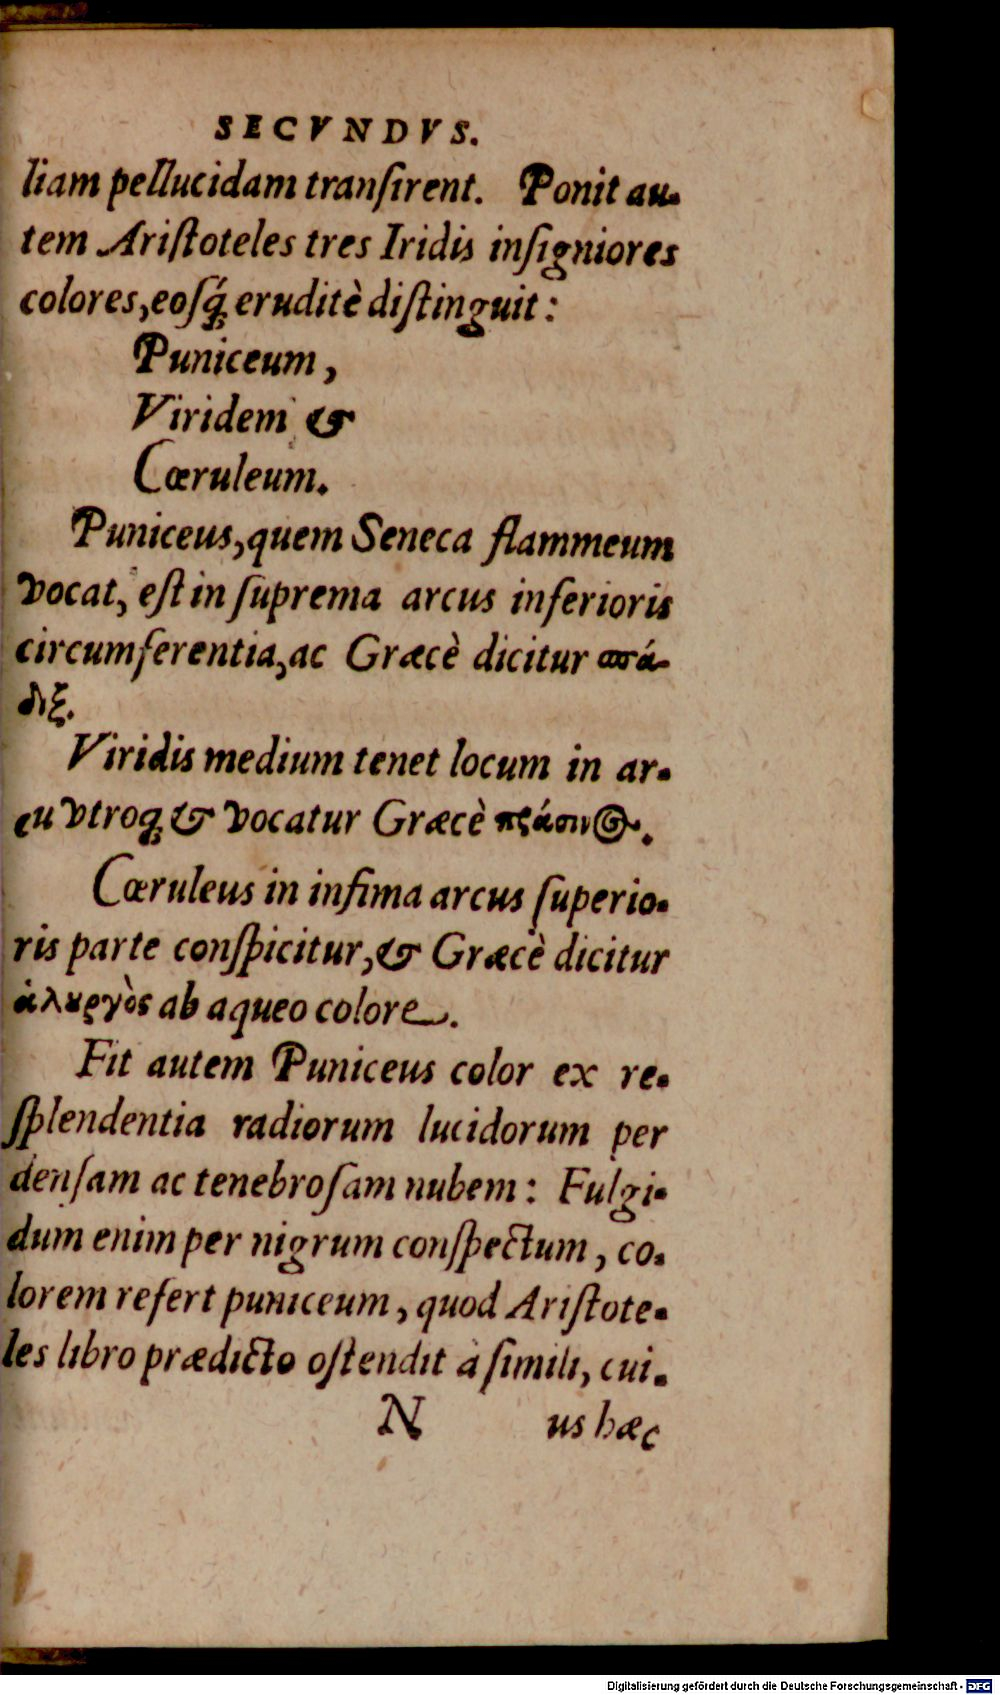 SECVNDVS.
liam pellucidam tranſirent. Ponit au-
tem Ariſtoteles tres Iridis inſigniores
colores, eosq́ eruditè diſtinguit:
Puniceum,
Viridem &
Cœruleum.
Puniceus, quem Seneca flammeum
vocat, eſt in ſuprema arcus inferioris
circumferentia, ac Græcè dicitur σπά-
διξ.
Viridis medium tenet locum in ar-
cu vtroq; & vocatur Græcè πράσιν@.
Cœruleus in infima arcus ſuperio-
ris parte conſpicitur, & Græcè dicitur
ἁλȣργὸς ab aqueo colore.
Fit autem Puniceus color ex re-
ſplendentia radiorum lucidorum per
denſam ac tenebroſam nubem: Fulgi-
dum enim per nigrum conſpectum, co-
lorem refert puniceum, quod Ariſtote-
les libro prædicto oſtendit à ſimili, cui-
N us hæc
Digitalisierung gefördert durch die Deutsche Forschungsgemeinschaft - DFG